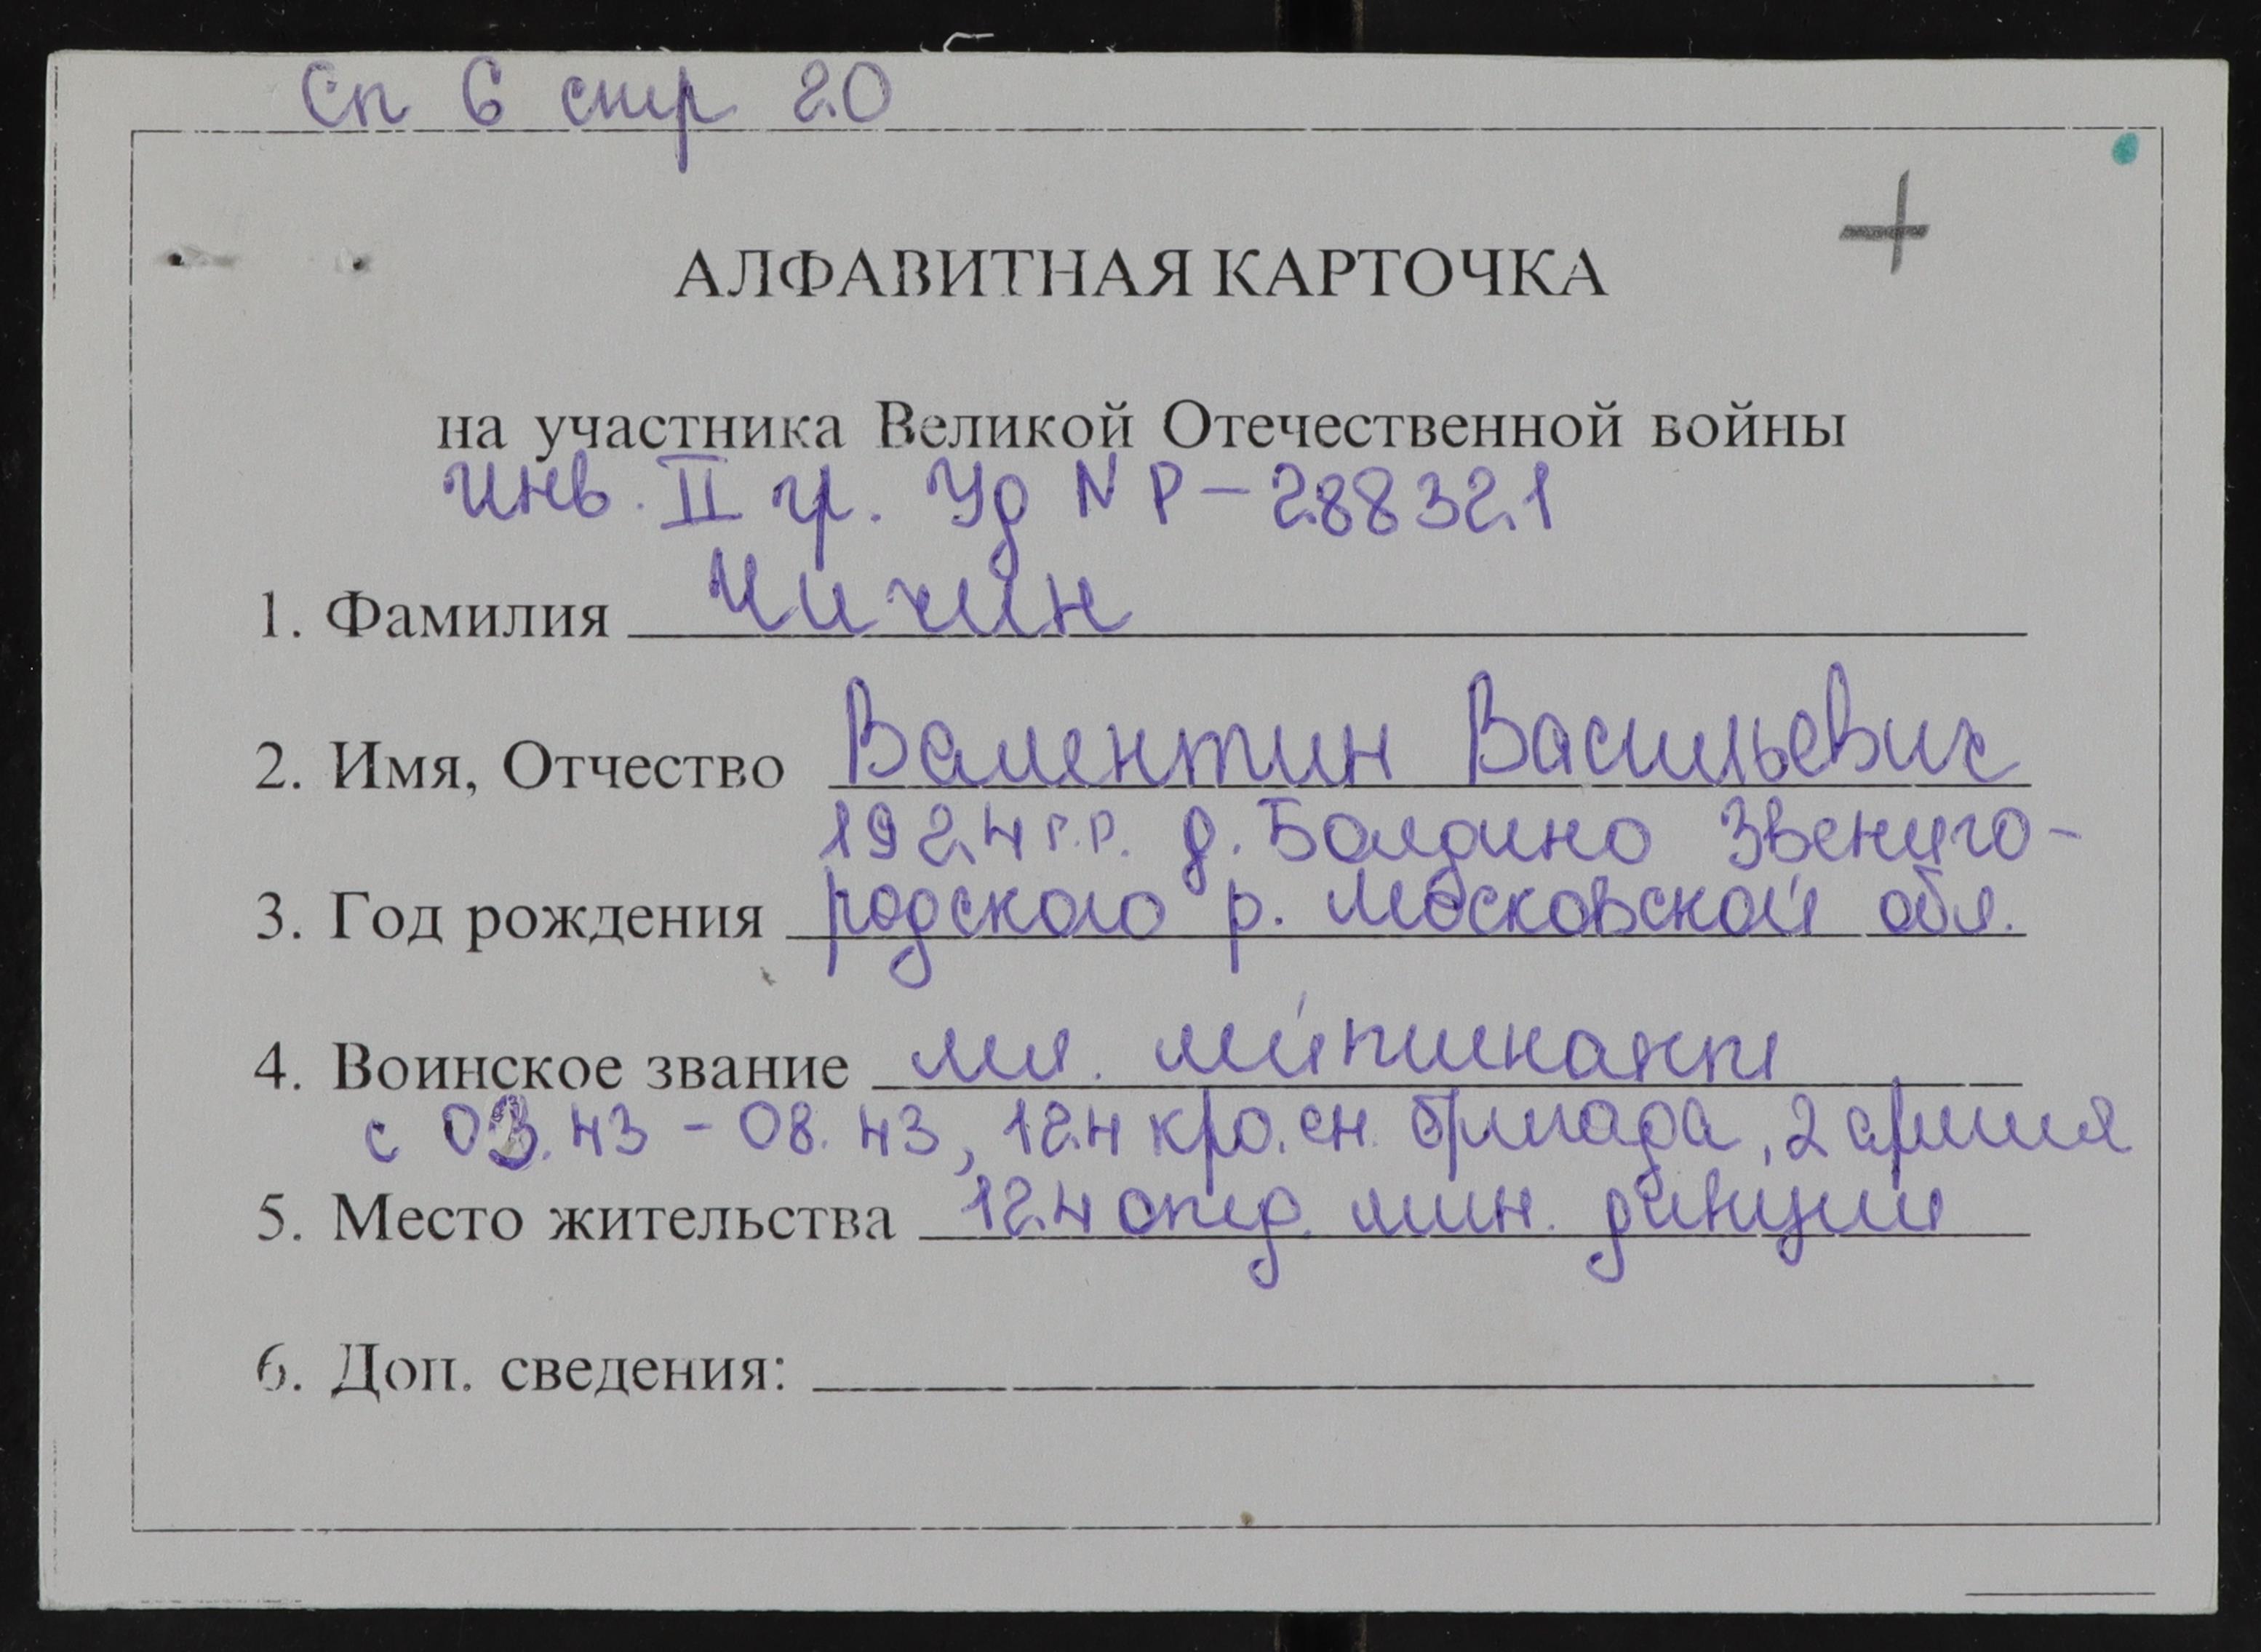 Сп 6 стр 20
АЛФАВИТНАЯ КАРТОЧКА
на участника Великой Отечественной войны
инв. II гр. Уд N Р-288321
1. Фамилия Чичин
2. Имя, Отчество Валентин Васильевич
1924 г.р. д. Болдино Звениго-
3. Год рождения родского р. Московской обл.
4. Воинское звание мл. лейтенант
с 03.43 - 08.43, 124 кра.сн. бригада, 2 армия
5. Место жительства 124 мин. дивизии
6. Доп. сведения: